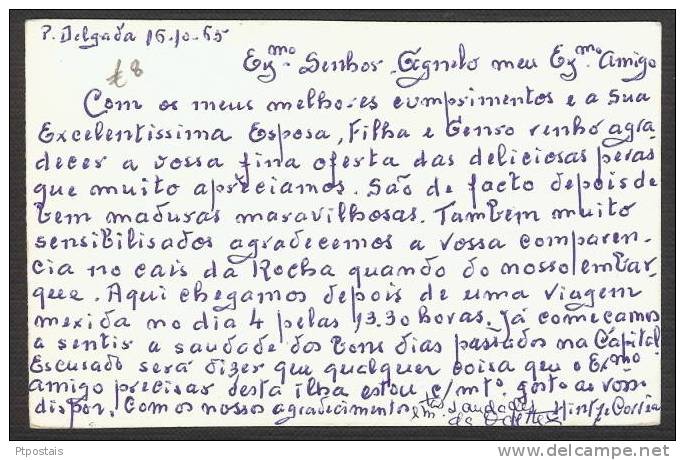 P. Delgada 16-10-65
€ 8
Exmº. Senhor Agnelo meu Exmº. Amigo
Com os meus melhores cumprimentos e a Sua
Excelentissima Esposa, Filha e Genro venho agra-
decer a vossa fina oferta das deliciosas peras
que muito apreciamos. São de facto depois de
bem maduras maravilhosas. Tambem muito
sensibilisados agradecemos a vossa comparen-
cia no cais da Rocha quando do nosso embar-
que. Aqui chegamos depois de uma viagem
mexida no dia 4 pelas 13.30 horas. Já começamos
a sentir a saudade dos bons dias passados na Capital.
Escusado será dizer que qualquer coisa que o Exmº
amigo precisar desta ilha estou c/ mtº. gosto ao vosso
dispor. Com os nossos agradecimentos e mtas. saudades
da Odette Correia
Ptpostais